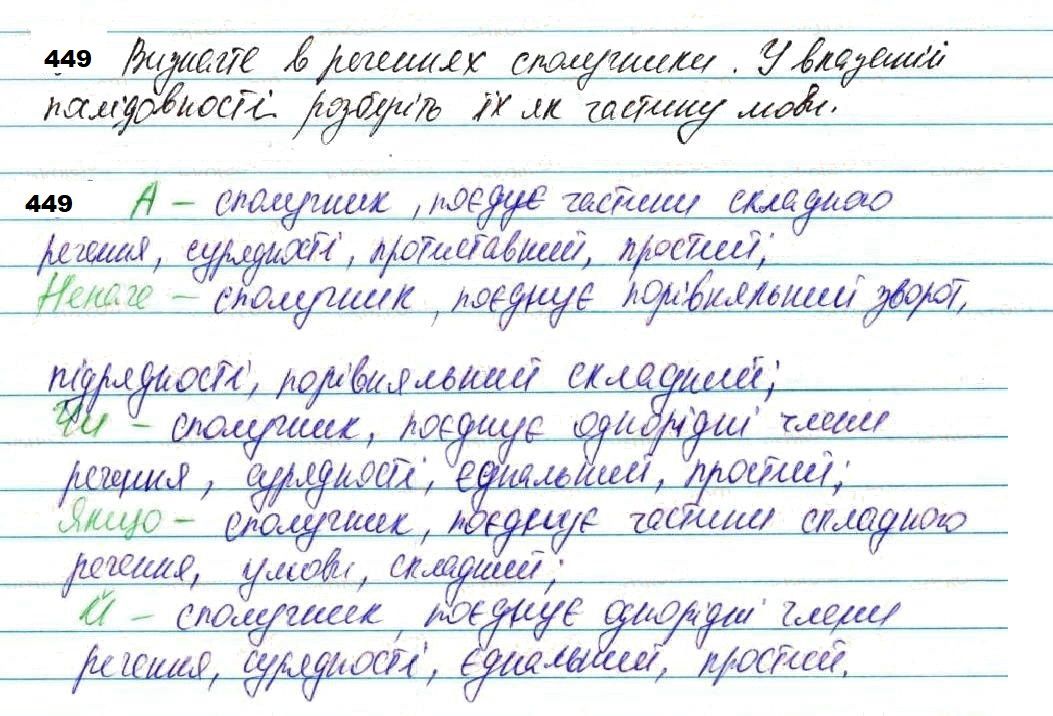 449 Визначте в реченнях сполучники. У вказаній
послідовності розберіть їх як частину мови.
449 А – сполучник, поєднує частини складного
речення, сурядності, протиставний, простий;
Неначе – сполучник, поєднує порівняльний зворот,
підрядності, порівняльний складний;
Чи – сполучник, поєднує однорідні члени
речення, сурядності, єднальний, простий;
Якщо – сполучник, поєднує частини складного
речення, умови, складний;
Й – сполучник, поєднує однорідні члени
речення, сурядності, єднальний, простий.